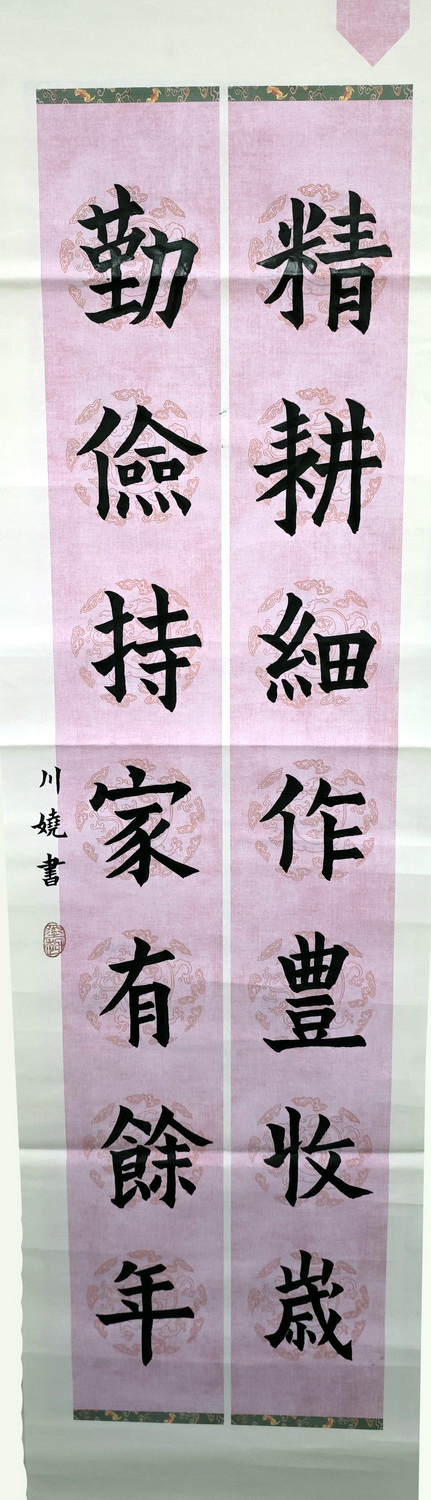 精耕細作豊收歲
勤儉持家有餘年
川嬈書